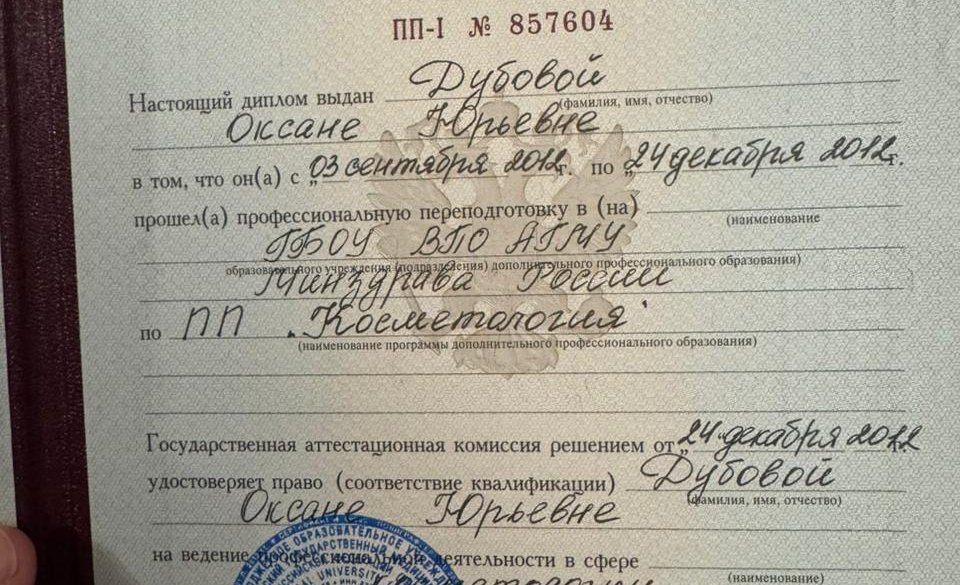 ПП-I № 857604
Настоящий диплом выдан Дубовой
(фамилия, имя, отчество)
Оксане Юрьевне
в том, что он(а) с „03 сентября 2012г. по „24 декабря 2012г.
прошел(а) профессиональную переподготовку в (на)
(наименование
ГБОУ ВПО АГМУ
образовательного учреждения (подразделения) дополнительного профессионального образования)
Минздрава России
по ПП „Косметология"
(наименование программы дополнительного профессионального образования)
Государственная аттестационная комиссия решением от „24 декабря 2012
удостоверяет право (соответствие квалификации) Дубовой
(фамилия, имя, отчество)
Оксане Юрьевне
на ведение профессиональной деятельности в сфере
(наименование